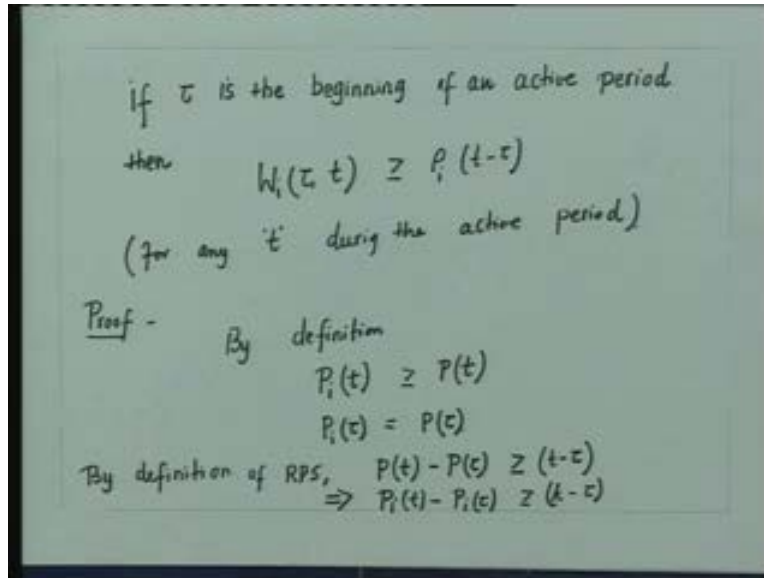 if τ is the beginning of an active period
then Wᵢ(τ, t) ≥ ρᵢ (t-τ)
(for any 't' durig the active period)
Proof - By definition
Pᵢ(t) ≥ P(t)
Pᵢ(τ) = P(τ)
By definition of RPS, P(t) - P(τ) ≥ (t-τ)
⇒ Pᵢ(t) - Pᵢ(τ) ≥ (t-τ)